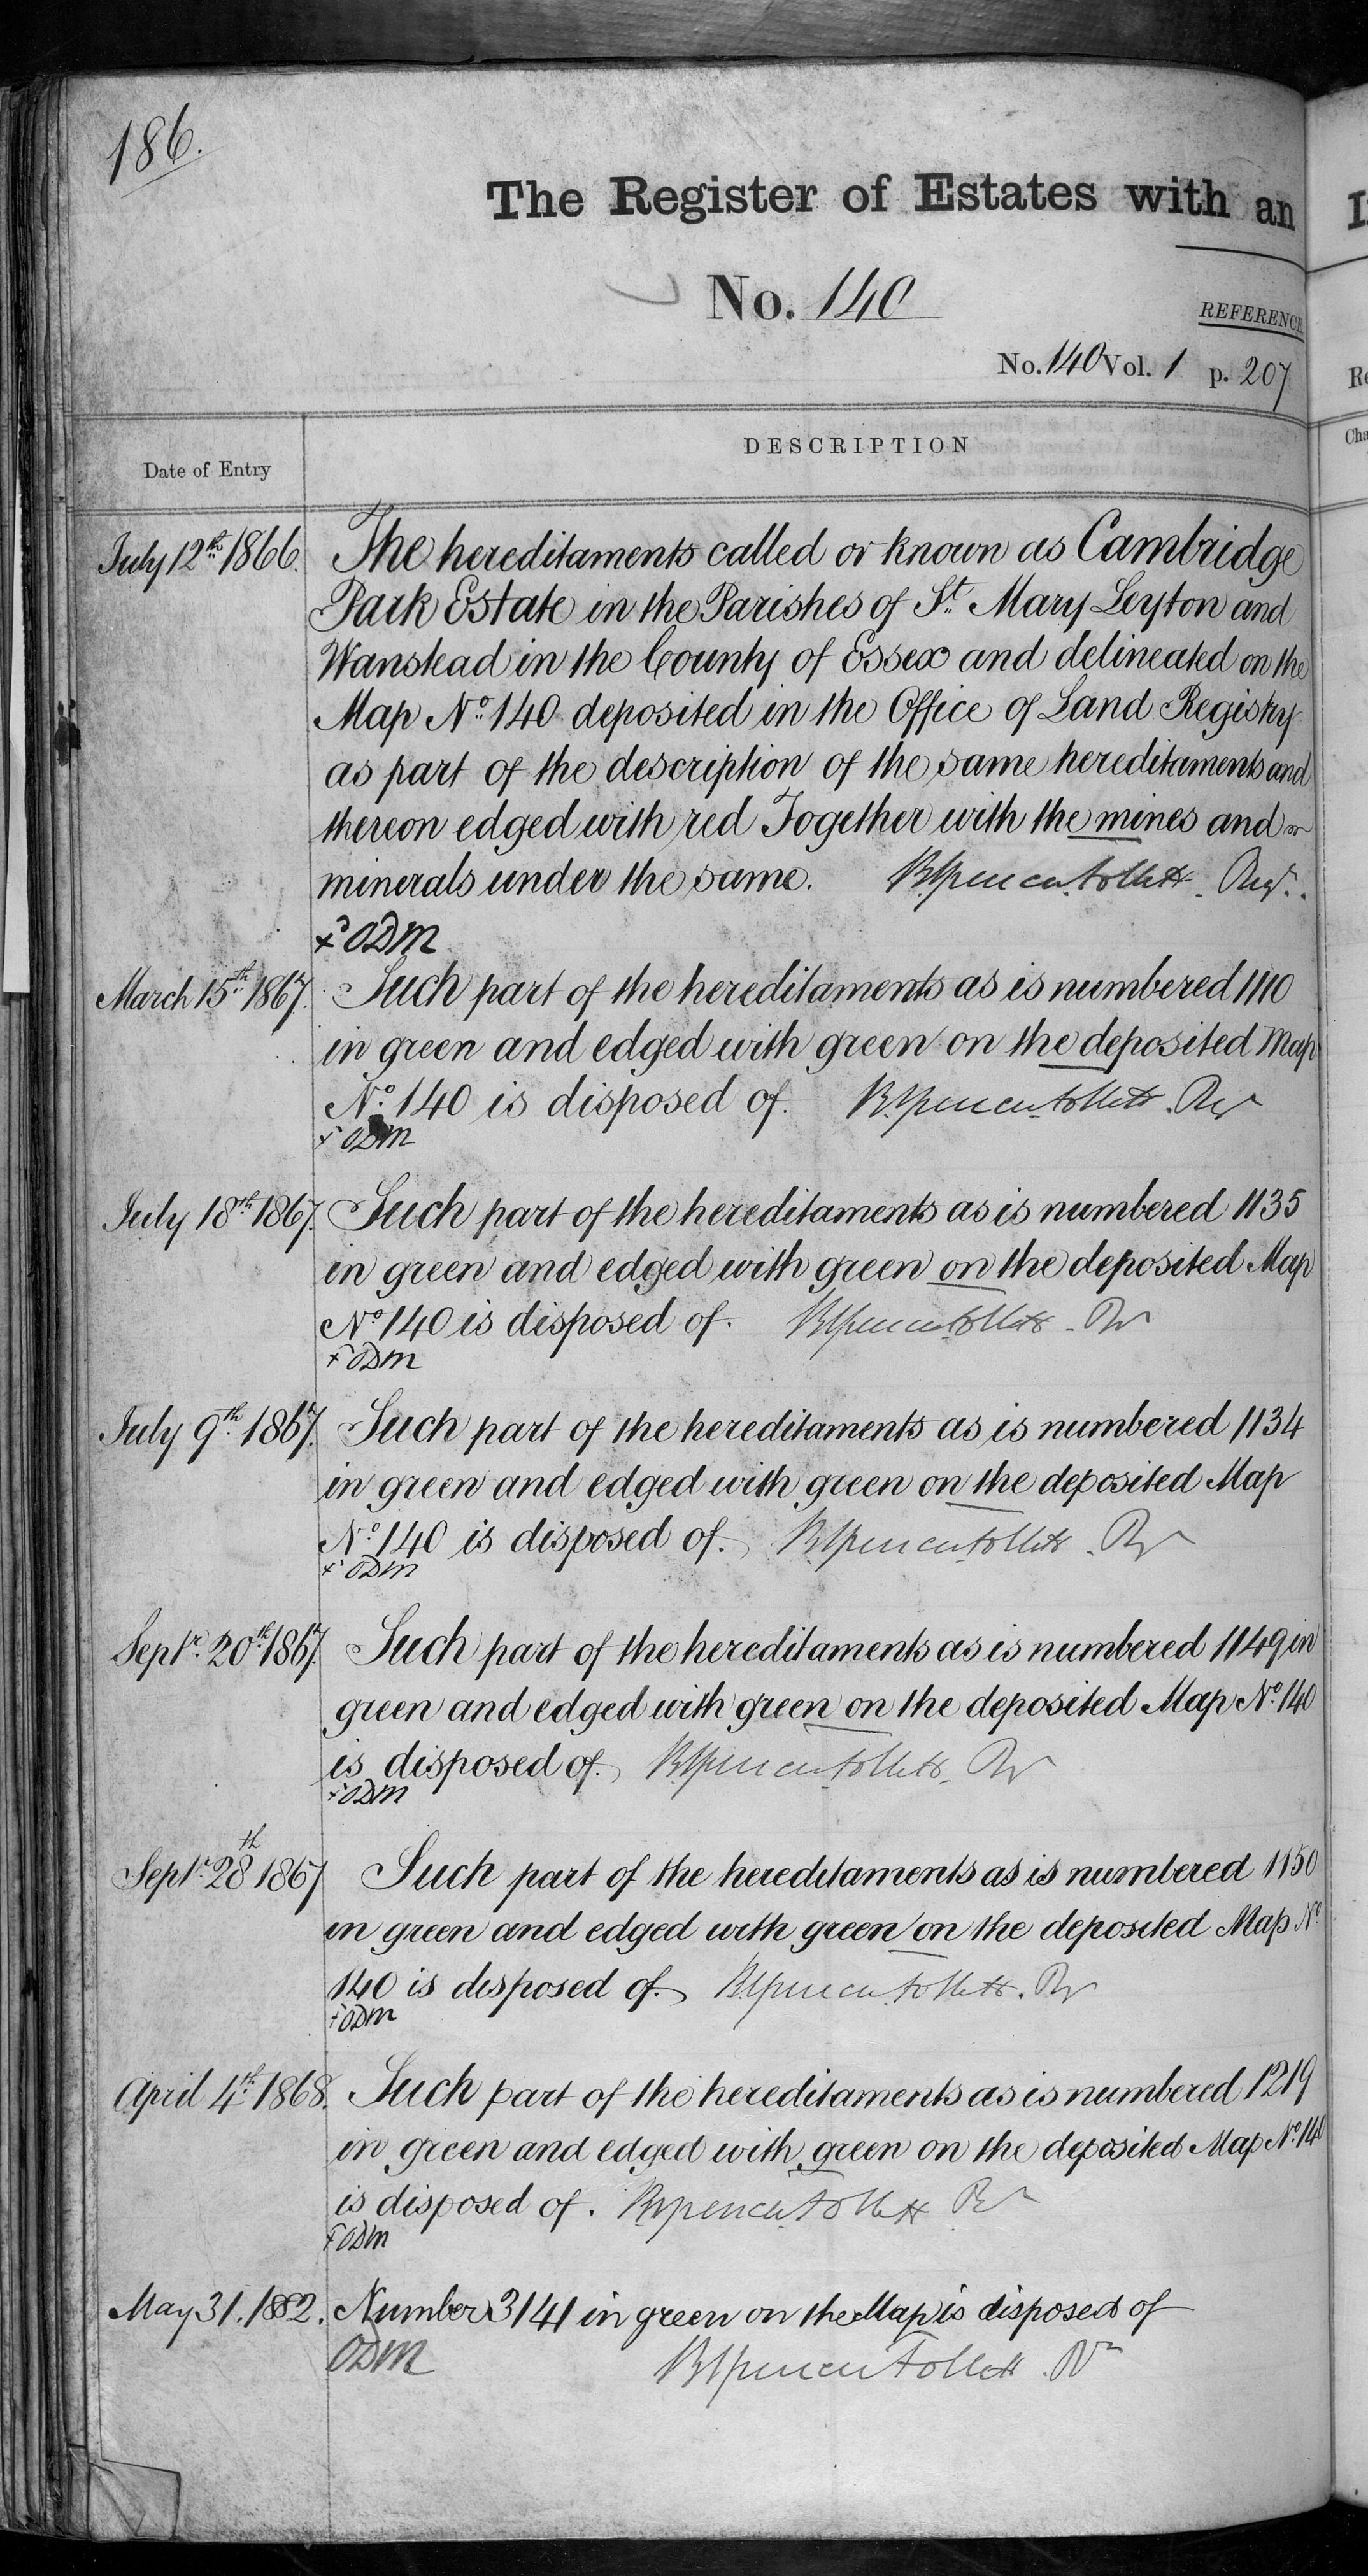 186.
The Register of Estates with an
No. 140
REFERENCE
No. 140 Vol. 1 p. 207
Date of Entry
DESCRIPTION
July 12th 1866. The hereditaments called or known as Cambridge
Park Estate in the Parishes of St. Mary Leyton and
Wanstead in the County of Essex and delineated on the
Map No. 140 deposited in the Office of Land Registry
as part of the description of the same hereditaments and
thereon edged with red Together with the mines and
minerals under the same. B Spencer Follett. Regr.
ODM
March 15th 1867. Such part of the hereditaments as is numbered 1110
in green and edged with green on the deposited Map
No. 140 is disposed of. B Spencer Follett. Rr
ODM
July 18th 1867. Such part of the hereditaments as is numbered 1135
in green and edged with green on the deposited Map
No. 140 is disposed of. B Spencer Follett. Rr
ODM
July 9th 1867. Such part of the hereditaments as is numbered 1134
in green and edged with green on the deposited Map
No. 140 is disposed of. B Spencer Follett. Rr
ODM
Septr. 20th 1867. Such part of the hereditaments as is numbered 1149 in
green and edged with green on the deposited Map No. 140
is disposed of. B Spencer Follett. Rr
ODM
Septr. 28th 1867 Such part of the hereditaments as is numbered 1150
in green and edged with green on the deposited Map No.
140 is disposed of. B Spencer Follett. Rr
ODM
April 4th 1868. Such part of the hereditaments as is numbered 1219
in green and edged with green on the deposited Map No. 140
is disposed of. B Spencer Follett Rr
ODM
May 31. 1882. Number 3141 in green on the Map is disposed of
ODM B Spencer Follett. Rr